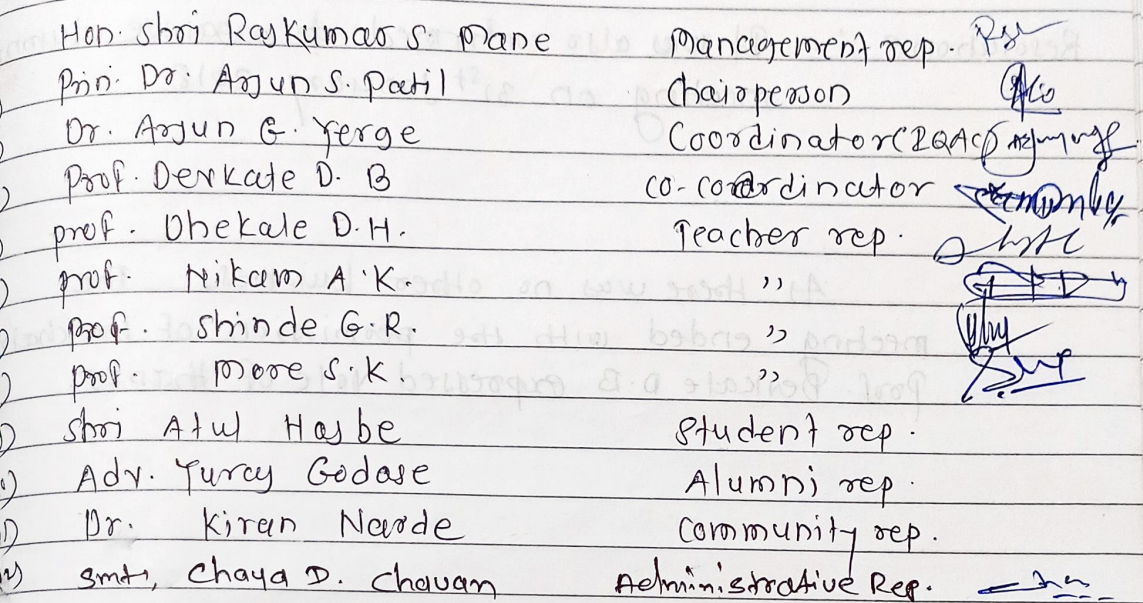 Hon. Shri Rajkumar S. Mane Management rep.
Prin. Dr. Arjun S. Patil Chairperson
Dr. Arjun G. Yerge Coordinator (IQAC)
Prof. Devkate D. B Co-coordinator
prof. Dhekale D.H. Teacher rep.
prof. Nikam A.K. ,,
prof. Shinde G.R. ,,
prof. More S.K. ,,
Shri Atul Hasbe Student rep.
Adv. Yuraj Godase Alumni rep.
Dr. Kiran Narde Community rep.
Smt, Chaya D. Chavan Administrative Rep.